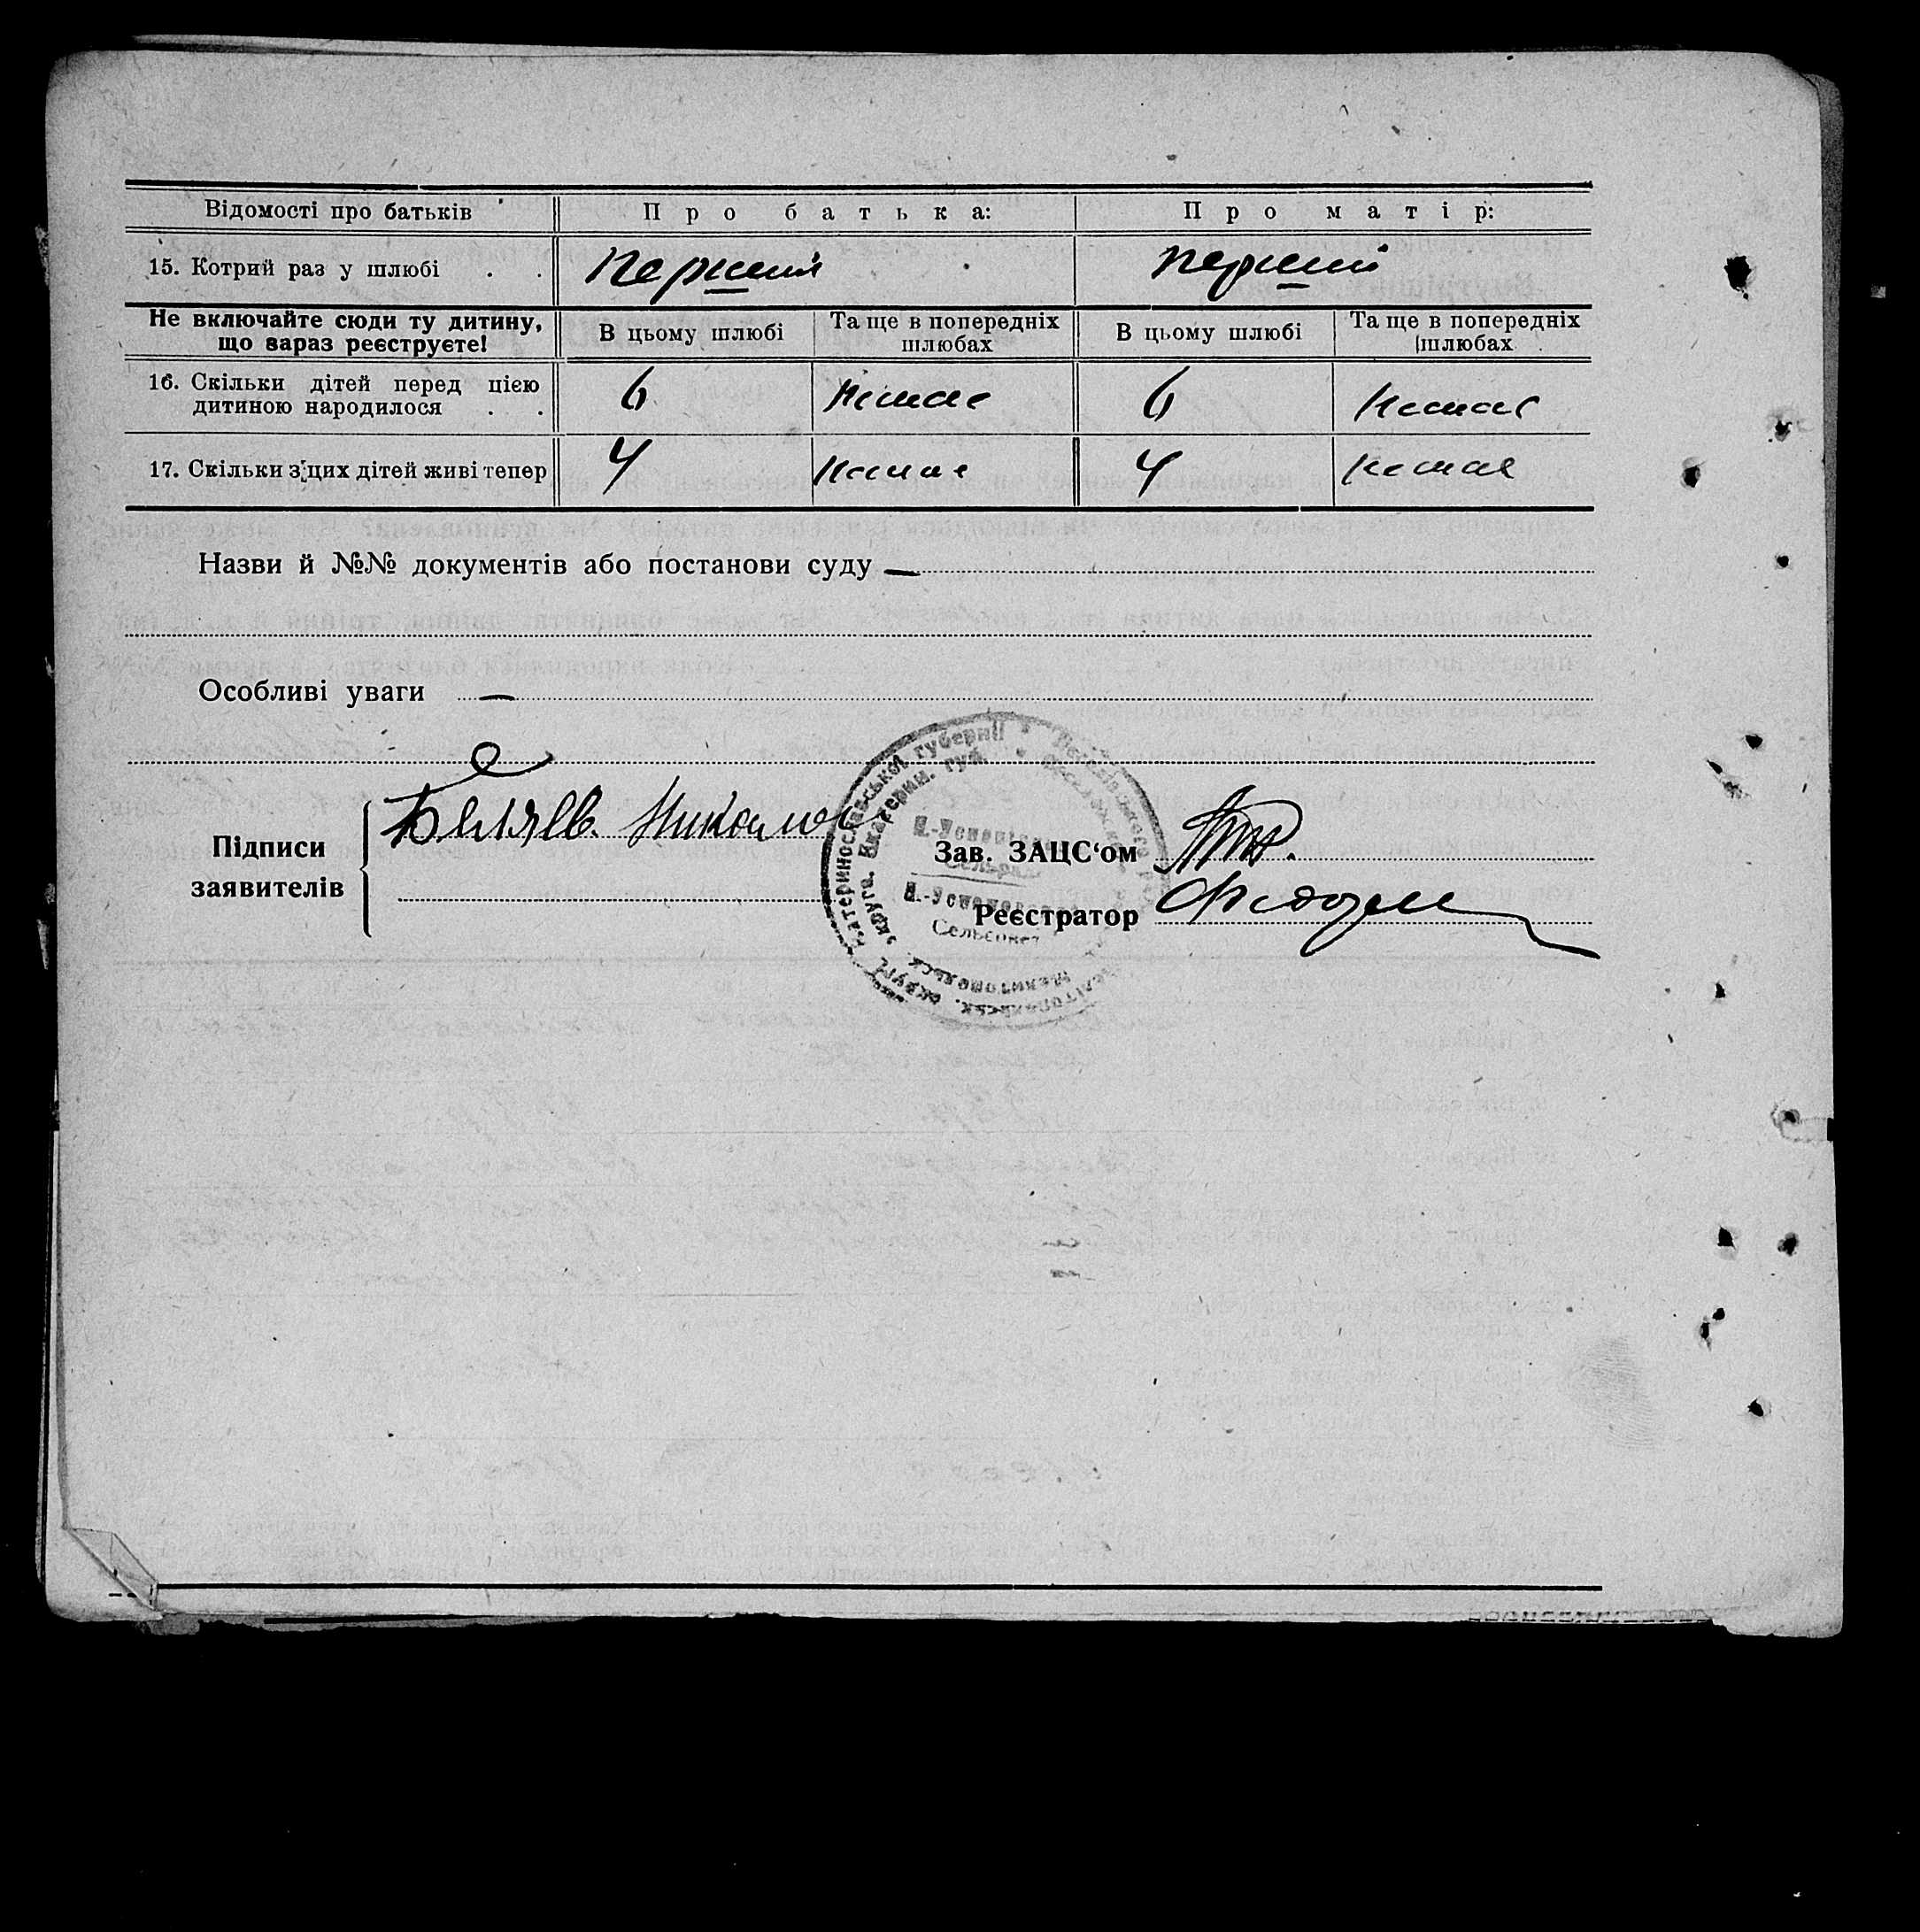 Відомості про батьків Про батька: Про матір:
15. Котрий раз у шлюбі . . Перший перший
Не включайте сюди ту дитину, що вараз реєструєте! В цьому шлюбі Та ще в попередніх шлюбах В цьому шлюбі Та ще в попередніх шлюбах
16. Скільки дітей перед цією дитиною народилося . . 6 Немає 6 Немає
17. Скільки з цих дітей живі тепер 4 Немає 4 Немає
Назви й №№ документів або постанови суду —
Особливі уваги —
Підписи заявителів
Беляев Николай
Зав. ЗАЦС‘ом
Реєстратор
Катеринославської губернії
округа. Екатерин. губ.
Сельсовет